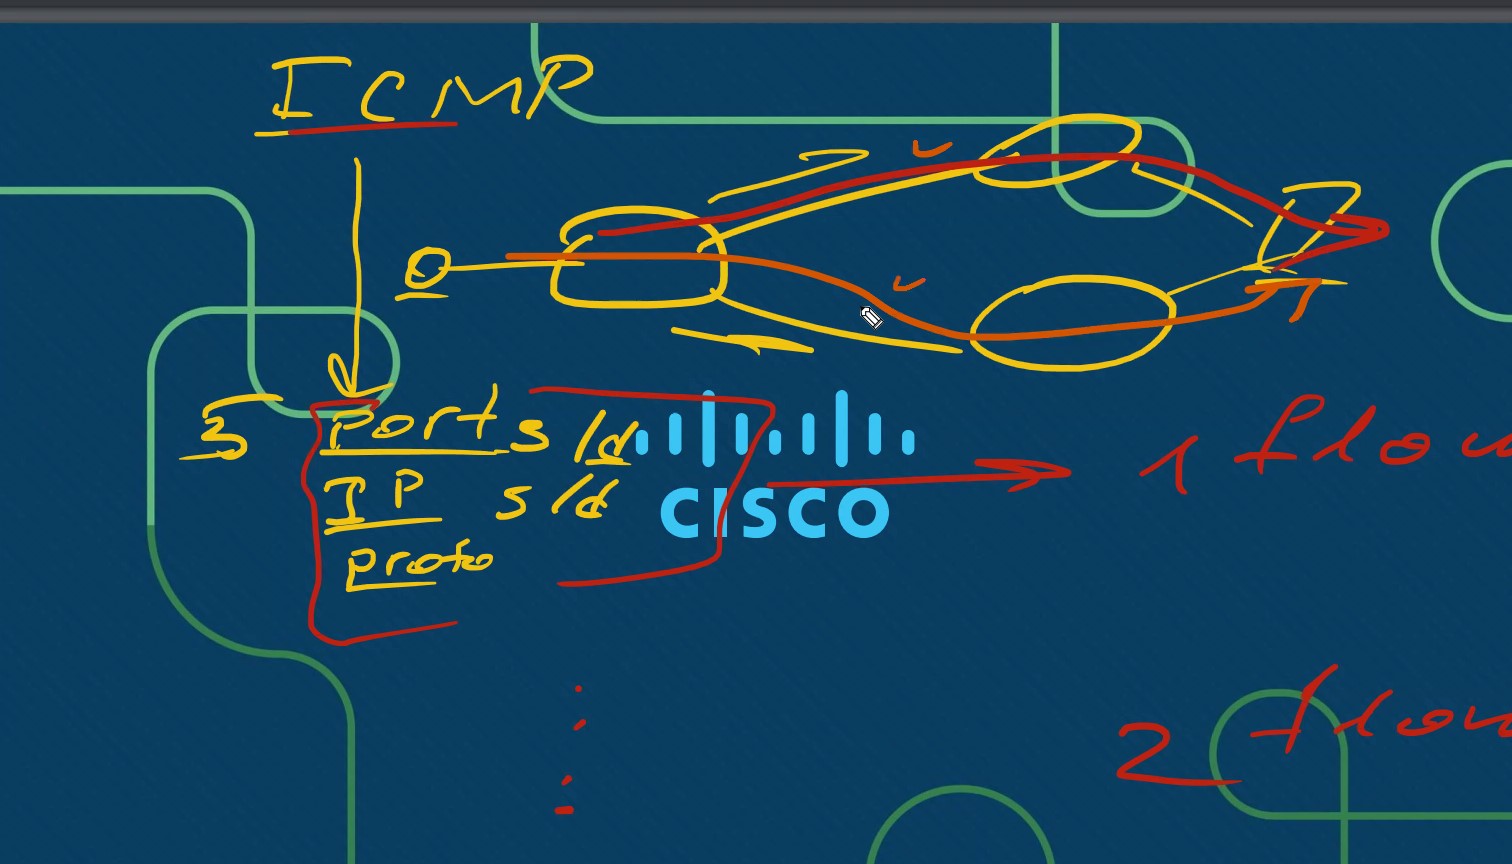 ICMP
5 Port s/d
IP s/d
proto
CISCO
1 flow
2 flow